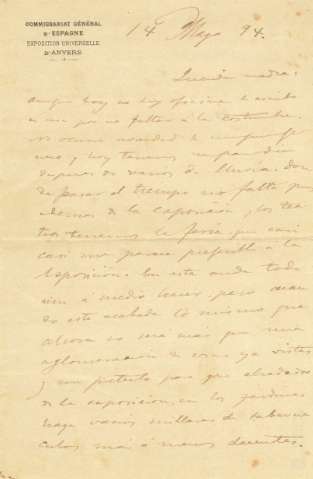 COMMISSARIAT GÉNÉRAL
D'ESPAGNE
EXPOSITION UNIVERSELLE
D'ANVERS
14 Mayo 94.
Querida madre:
Aunque hoy no hay
por no faltar á la costumbre.
No ocurre novedad
y hoy tenemos
despues de varios de lluvia. Don-
de pasar el tiempo no falta, pues
ademas de la exposición, los tea-
tros tenemos la feria que casi
casi me parece preferible a la
Exposición. En esta anda todo
aun á medio hacer, pero cuan-
do este acabado lo mismo que
ahora no será más que una
aglomeración de cosas ya vistas
y un pretexto para que alrededor
de la exposición, en los jardines
haya varios millares de
más ó menos decentes.